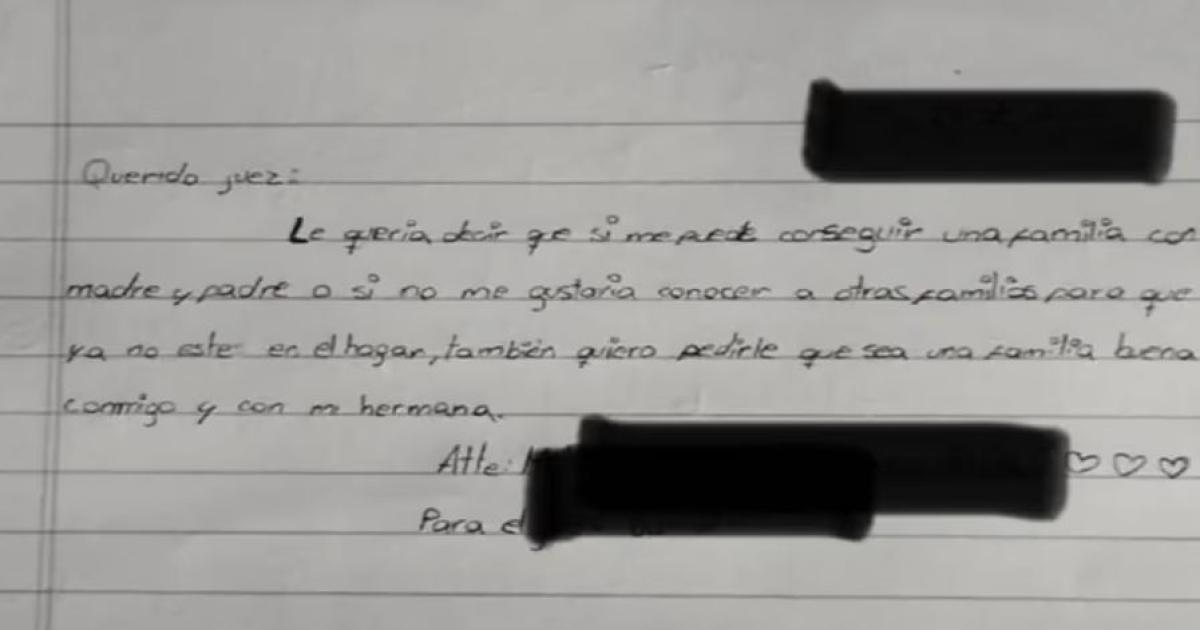 Querido juez:
Le queria decir qe si me puede conseguir una familia con
madre y padre o si no me gustaria conocer a otras familias para que
ya no este en el hogar, también quiero pedirle que sea una familia buena
conmigo y con mi hermana.
Atte:
Para el